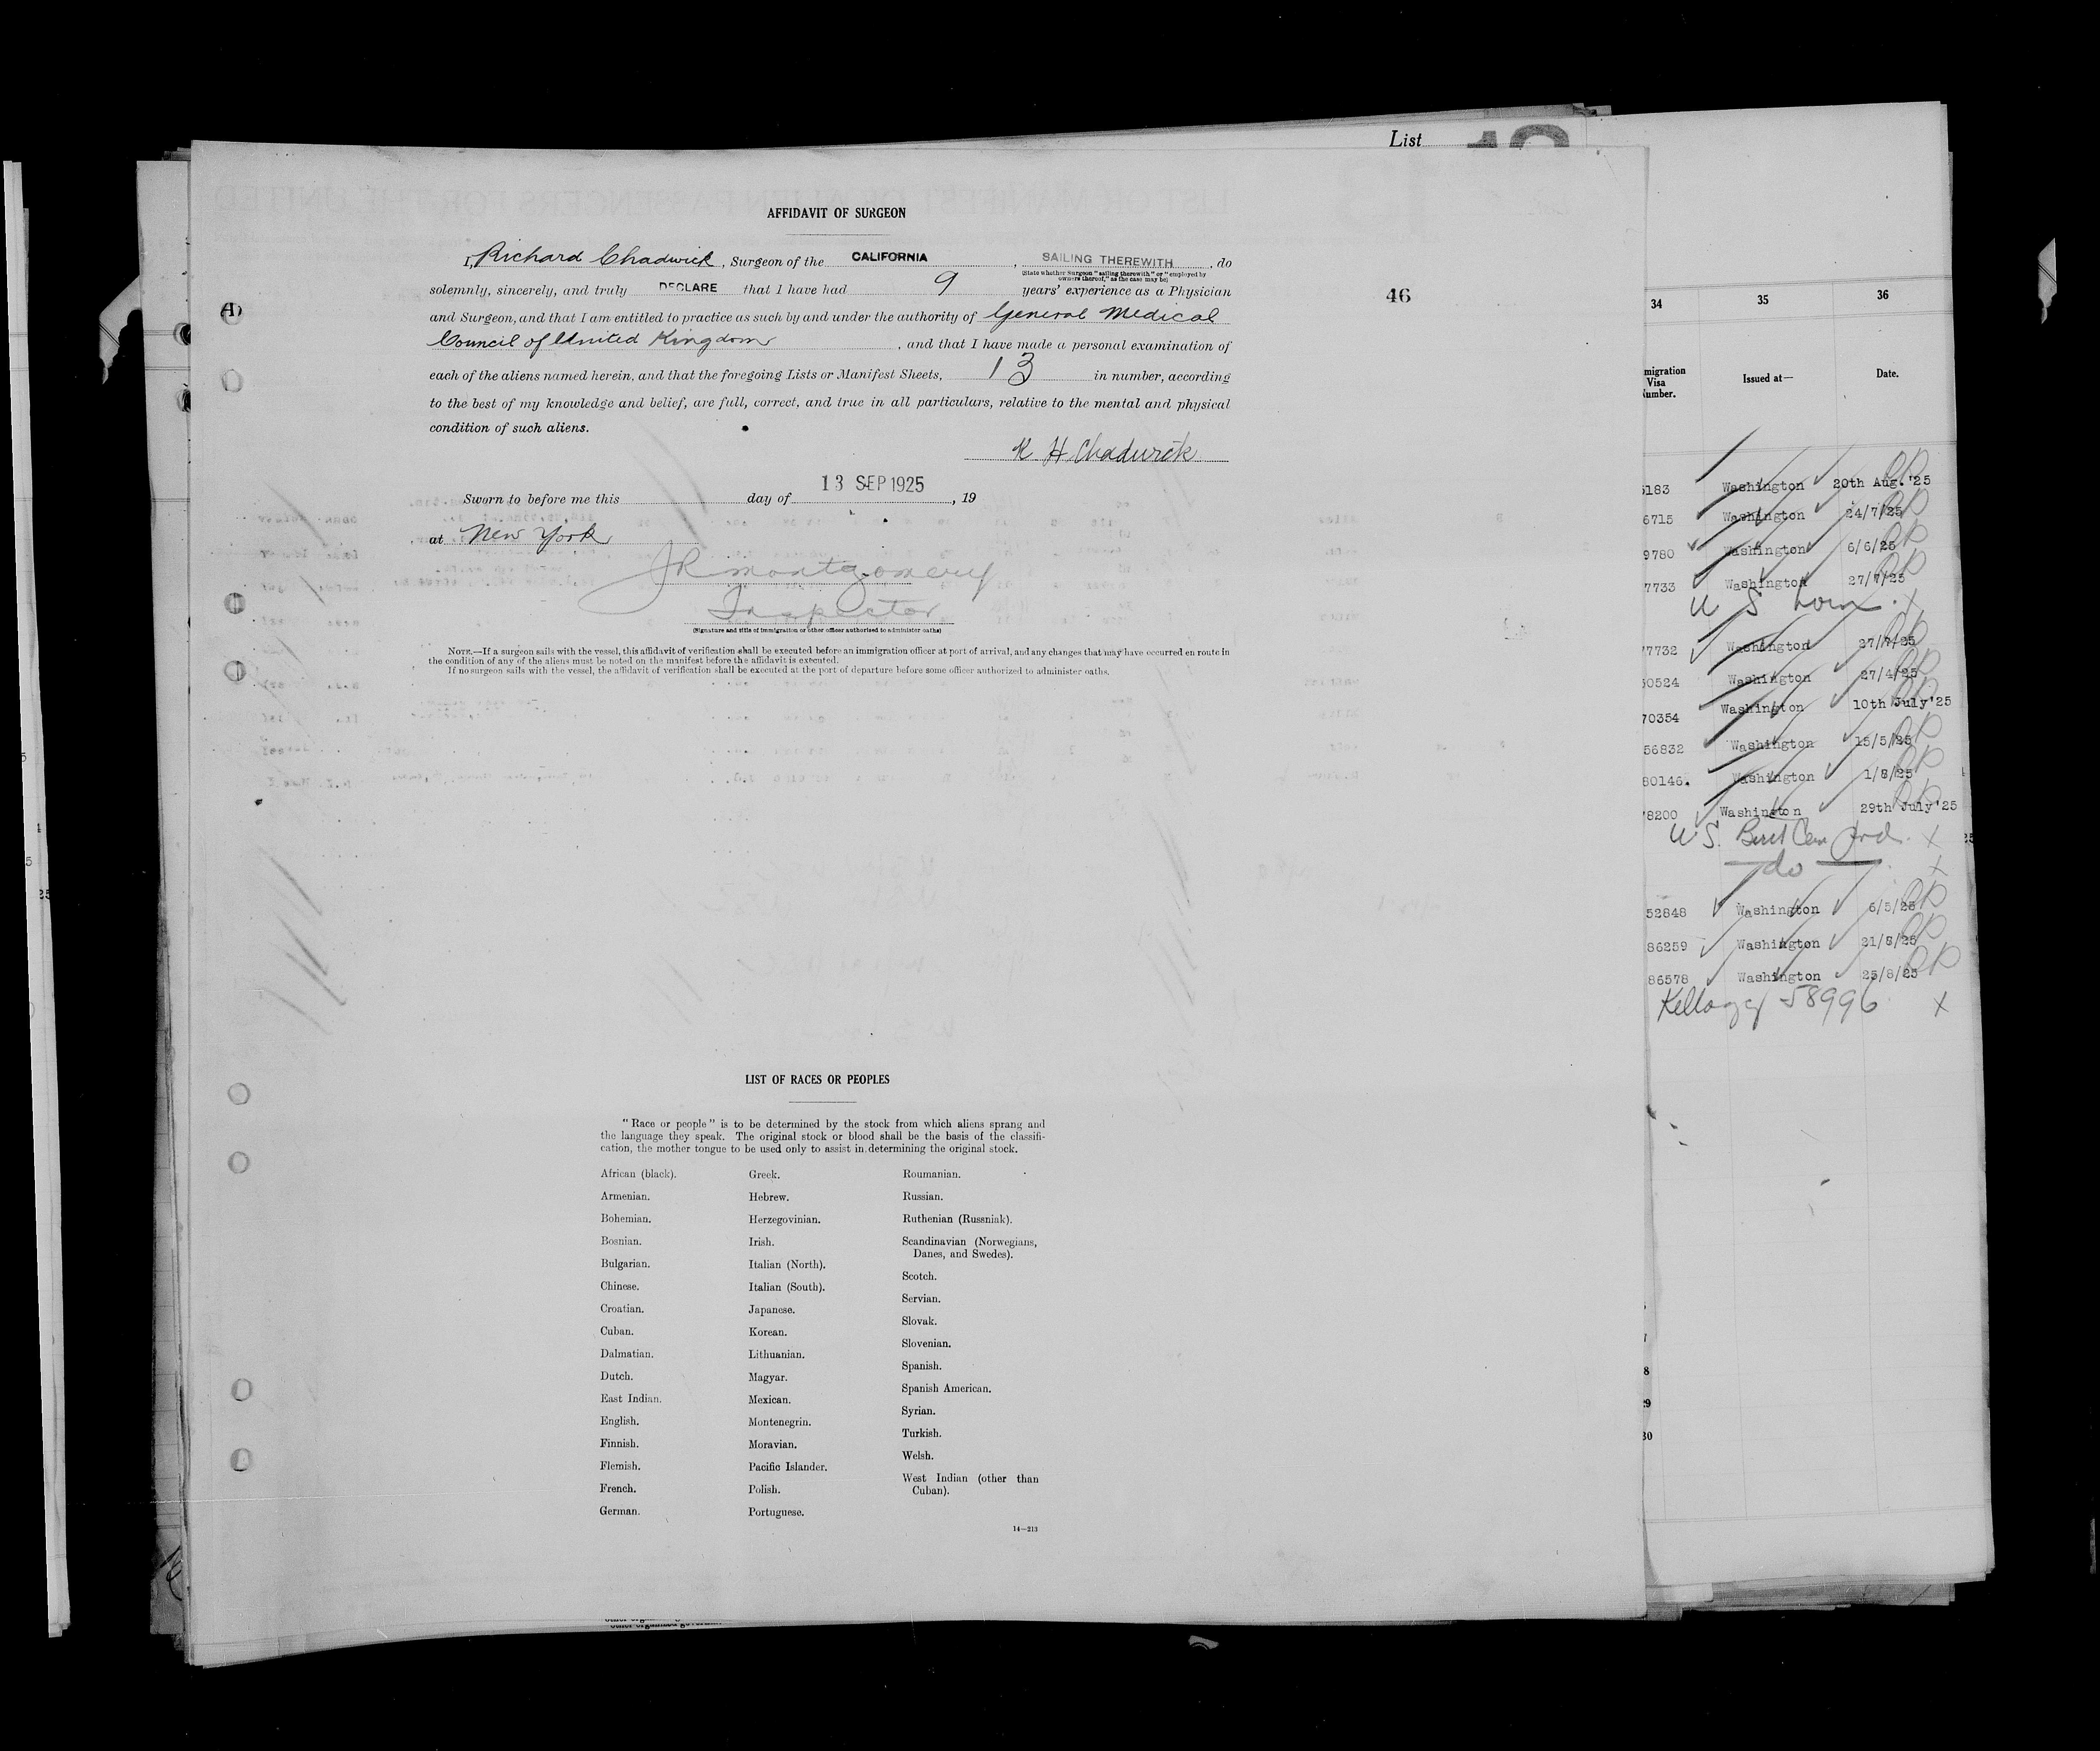 List
AFFIDAVIT OF SURGEON
I, Richard Chadwick, Surgeon of the CALIFORNIA, SAILING THEREWITH, do
(State whether Surgeon "sailing therewith" or "employed by
owners thereof," as the case may be)
solemnly, sincerely, and truly DECLARE that I have had 9 years' experience as a Physician
and Surgeon, and that I am entitled to practice as such by and under the authority of General Medical
Council of United Kingdom, and that I have made a personal examination of
each of the aliens named herein, and that the foregoing Lists or Manifest Sheets, 13 in number, according
to the best of my knowledge and belief, are full, correct, and true in all particulars, relative to the mental and physical
condition of such aliens.
R H Chadwick
Sworn to before me this day of 13 SEP 1925, 19
at New York
JR Montgomery
Inspector
(Signature and title of immigration or other officer authorized to administer oaths)
NOTE.—If a surgeon sails with the vessel, this affidavit of verification shall be executed before an immigration officer at port of arrival, and any changes that may have occurred en route in
the condition of any of the aliens must be noted on the manifest before the affidavit is executed.
If no surgeon sails with the vessel, the affidavit of verification shall be executed at the port of departure before some officer authorized to administer oaths.
46
LIST OF RACES OR PEOPLES
"Race or people" is to be determined by the stock from which aliens sprang and
the language they speak. The original stock or blood shall be the basis of the classifi-
cation, the mother tongue to be used only to assist in determining the original stock.
African (black).
Armenian.
Bohemian.
Bosnian.
Bulgarian.
Chinese.
Croatian.
Cuban.
Dalmatian.
Dutch.
East Indian.
English.
Finnish.
Flemish.
French.
German.
Greek.
Hebrew.
Herzegovinian.
Irish.
Italian (North).
Italian (South).
Japanese.
Korean.
Lithuanian.
Magyar.
Mexican.
Montenegrin.
Moravian.
Pacific Islander.
Polish.
Portuguese.
Roumanian.
Russian.
Ruthenian (Russniak).
Scandinavian (Norwegians,
Danes, and Swedes).
Scotch.
Servian.
Slovak.
Slovenian.
Spanish.
Spanish American.
Syrian.
Turkish.
Welsh.
West Indian (other than
Cuban).
14—213
34 35 36
migration
Visa
umber.
Issued at—
Date.
5183 Washington 20th Aug.'25
6715 Washington 24/7/25
9780 Washington 6/6/25
7733 Washington 27/7/25
U S born
77732 Washington 27/7/25
50524 Washington 27/4/25
70354 Washington 10th July'25
56832 Washington 15/5/25
80146. Washington 1/8/25
78200 Washington 29th July'25
U S.
do
52848 Washington 6/5/25
86259 Washington 21/8/25
86578 Washington 25/8/25
Kellogg 58996
30